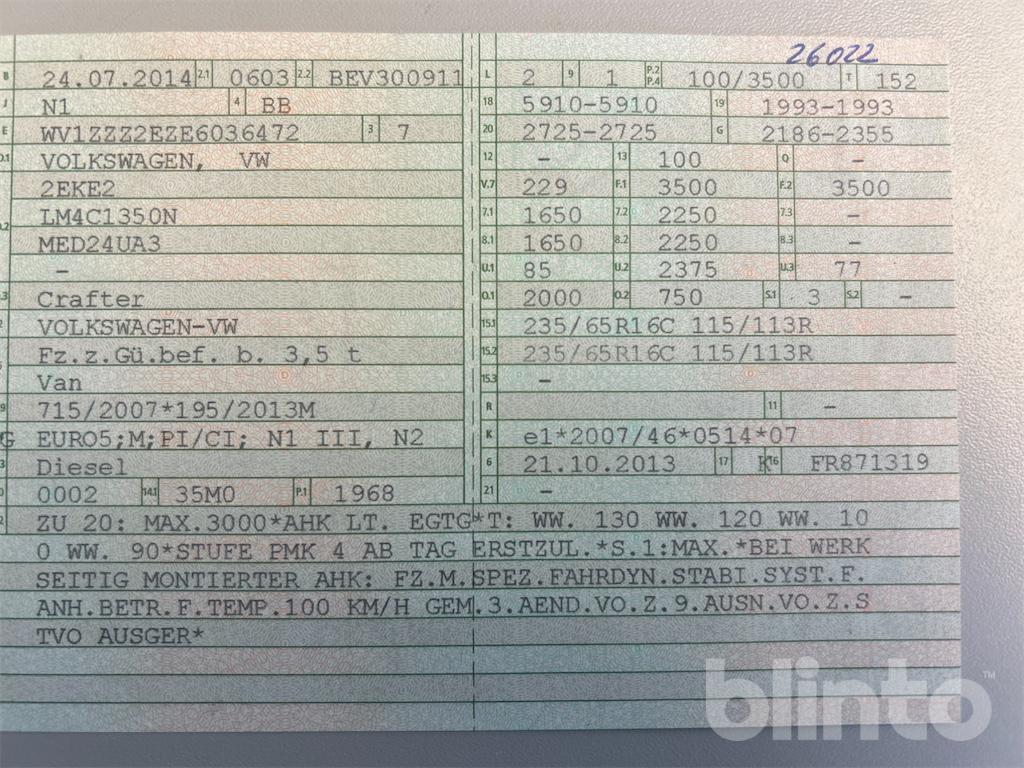 26022
B 24.07.2014 2.1 0603 2.2 BEV300911 L 2 9 1 P.2 P.4 100/3500 T 152
J N1 4 BB 18 5910-5910 19 1993-1993
E WV1ZZZ2EZE6036472 3 7 20 2725-2725 G 2186-2355
D.1 VOLKSWAGEN, VW 12 - 13 100 Q -
2EKE2 V.7 229 F.1 3500 F.2 3500
LM4C1350N 7.1 1650 7.2 2250 7.3 -
MED24UA3 8.1 1650 8.2 2250 8.3 -
- U.1 85 U.2 2375 U.3 77
Crafter O.1 2000 O.2 750 S.1 3 S.2 -
VOLKSWAGEN-VW 15.1 235/65R16C 115/113R
Fz.z.Gü.bef. b. 3,5 t 15.2 235/65R16C 115/113R
Van 15.3 -
715/2007*195/2013M R 11 -
EURO5;M;PI/CI; N1 III, N2 K e1*2007/46*0514*07
Diesel 6 21.10.2013 17 K 16 FR871319
0002 14.1 35M0 P.1 1968 21 -
ZU 20: MAX.3000*AHK LT. EGTG*T: WW. 130 WW. 120 WW. 10
0 WW. 90*STUFE PMK 4 AB TAG ERSTZUL.*S.1:MAX.*BEI WERK
SEITIG MONTIERTER AHK: FZ.M.SPEZ.FAHRDYN.STABI.SYST.F.
ANH.BETR.F.TEMP.100 KM/H GEM.3.AEND.VO.Z.9.AUSN.VO.Z.S
TVO AUSGER*
blinto™